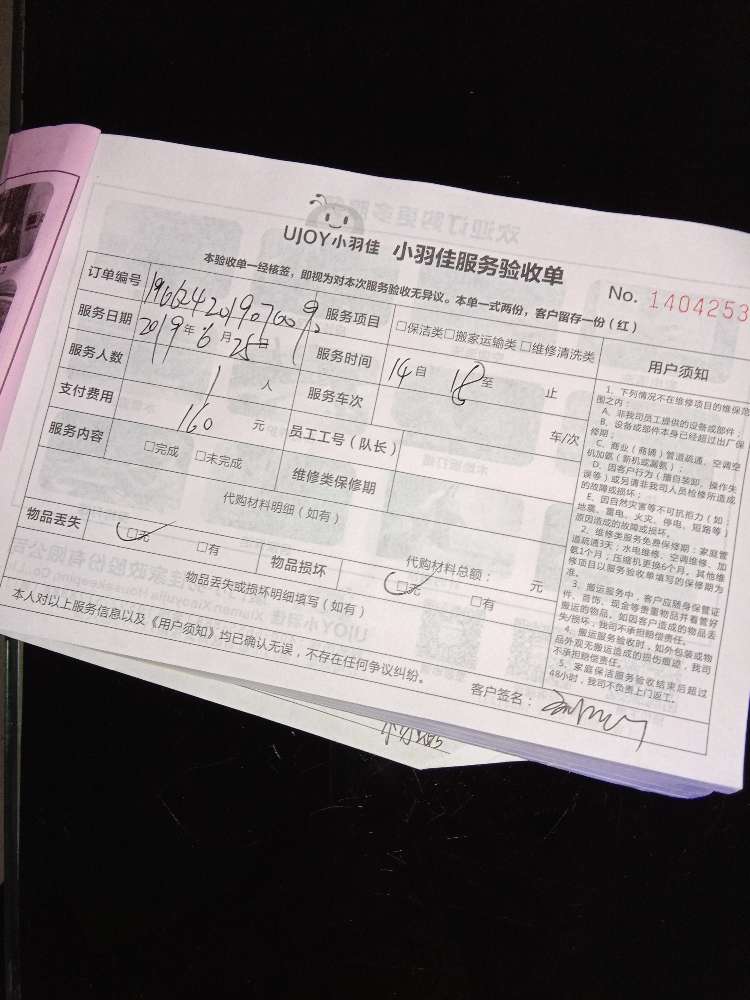 UJOY小羽佳 小羽佳服务验收单
本验收单一经核签，即视为对本次服务验收无异议。本单一式两份，客户留存一份（红）
No. 1404253
订单编号 服务项目 □保洁类□搬家运输类□维修清洗类
服务日期 2019年6月25日 服务时间 14自 18至 止
服务人数 1人 服务车次 车/次
支付费用 160元 员工工号（队长）
服务内容 □完成 □未完成 维修类保修期
代购材料明细（如有） 代购材料总额： 元
物品丢失 □无 □有 物品损坏 □无 □有
物品丢失或损坏明细填写（如有）
本人对以上服务信息以及《用户须知》均已确认无误，不存在任何争议纠纷。
客户签名：
用户须知
1、下列情况不在维修项目的维保范
围之内：
A、非我司员工提供的设备或部件；
B、设备或部件本身已经超过出厂保
修期；
C、商业（商通）管道疏通、空调空
机加氨（新机或漏氨）；
D、因客户行为（擅自装卸、操作失
误等）或另请非我司人员检修所造成
的故障或损坏；
E、因自然灾害等不可抗拒力（如：
地震、雷电、火灾、停电、短路等）
原因造成的故障或损坏。
2、维修类服务免费保修期：家庭管
道疏通3天；水电维修、空调维修、加
氨1个月；压缩机更换6个月。其他维
修项目以服务验收单填写的保修期为
准。
3、搬运服务中，客户应随身保管证
件、首饰、现金等贵重物品并看管好
搬运的物品。如因客户造成的物品丢
失/损坏，我司不承担赔偿责任。
4、搬运服务验收时，如外包装或物
品外观无搬运造成的损伤痕迹，我司
不承担赔偿责任。
5、家庭保洁服务验收结束后超过
48小时，我司不负责上门返工。